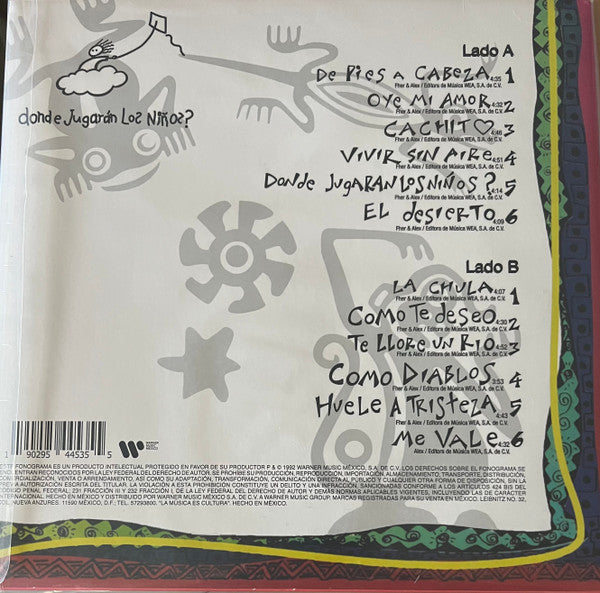 donde Jugarán Los Niños?
Lado A
De Pies A CABEZA 4:35 1
Fher & Alex / Editora de Música WEA, S.A. de C.V.
OYe Mi AMOR 4:32 2
Fher & Alex / Editora de Música WEA, S.A. de C.V.
CACHITO 4:46 3
Fher & Alex / Editora de Música WEA, S.A. de C.V.
VIVIR SIN AIRe 4:51 4
Fher & Alex / Editora de Música WEA, S.A. de C.V.
DONde JUGARAN LOS NIÑOS? 4:14 5
Fher & Alex / Editora de Música WEA, S.A. de C.V.
EL desierto 4:09 6
Fher & Alex / Editora de Música WEA, S.A. de C.V.
Lado B
LA CHULA 4:07 1
Fher & Alex / Editora de Música WEA, S.A. de C.V.
COMO Te deseo 4:30 2
Fher & Alex / Editora de Música WEA, S.A. de C.V.
Te LLORÉ UN RIO 4:52 3
Fher & Alex / Editora de Música WEA, S.A. de C.V.
COMO DIABLOS 3:53 4
Fher & Alex / Editora de Música WEA, S.A. de C.V.
HUele A TRISTeZA 4:43 5
Fher & Alex / Editora de Música WEA, S.A. de C.V.
Me VALe 4:32 6
Alex / Editora de Música WEA, S.A. de C.V.
1 90295 44535 5
ESTE FONOGRAMA ES UN PRODUCTO INTELECTUAL PROTEGIDO EN FAVOR DE SU PRODUCTOR P & © 1992 WARNER MUSIC MÉXICO, S.A. DE C.V. LOS DERECHOS SOBRE EL FONOGRAMA SE
ENTRAN RECONOCIDOS POR LA LEY FEDERAL DEL DERECHO DE AUTOR. SE PROHÍBE SU PRODUCCIÓN, REPRODUCCIÓN, IMPORTACIÓN, ALMACENAMIENTO, TRANSPORTE, DISTRIBUCIÓN,
COMERCIALIZACIÓN, VENTA O ARRENDAMIENTO, ASÍ COMO SU ADAPTACIÓN, TRANSFORMACIÓN, COMUNICACIÓN DIRECTA AL PUBLICO Y CUALQUIER OTRA FORMA DE DISPOSICIÓN, SIN LA
PREVIA AUTORIZACIÓN ESCRITA DEL TITULAR. LA VIOLACIÓN A ESTA PROHIBICIÓN CONSTITUYE UN DELITO Y UNA INFRACCIÓN, SANCIONADAS CONFORME A LOS ARTÍCULOS 424 BIS DEL
CÓDIGO PENAL FEDERAL, 231 FRACCIÓN III Y 232 FRACCIÓN I DE LA LEY FEDERAL DEL DERECHO DE AUTOR Y DEMÁS NORMAS APLICABLES VIGENTES, INCLUYENDO LAS DE CARÁCTER
INTERNACIONAL. HECHO EN MÉXICO Y DISTRIBUIDO POR WARNER MUSIC MÉXICO S.A. DE C.V. A WARNER MUSIC GROUP. MARCAS REGISTRADAS PARA SU VENTA EN MÉXICO. LEIBNITZ NO. 32,
NUEVA ANZURES. 11590 MÉXICO, D.F.; TEL. 57293800. "LA MÚSICA ES CULTURA". HECHO EN MÉXICO.